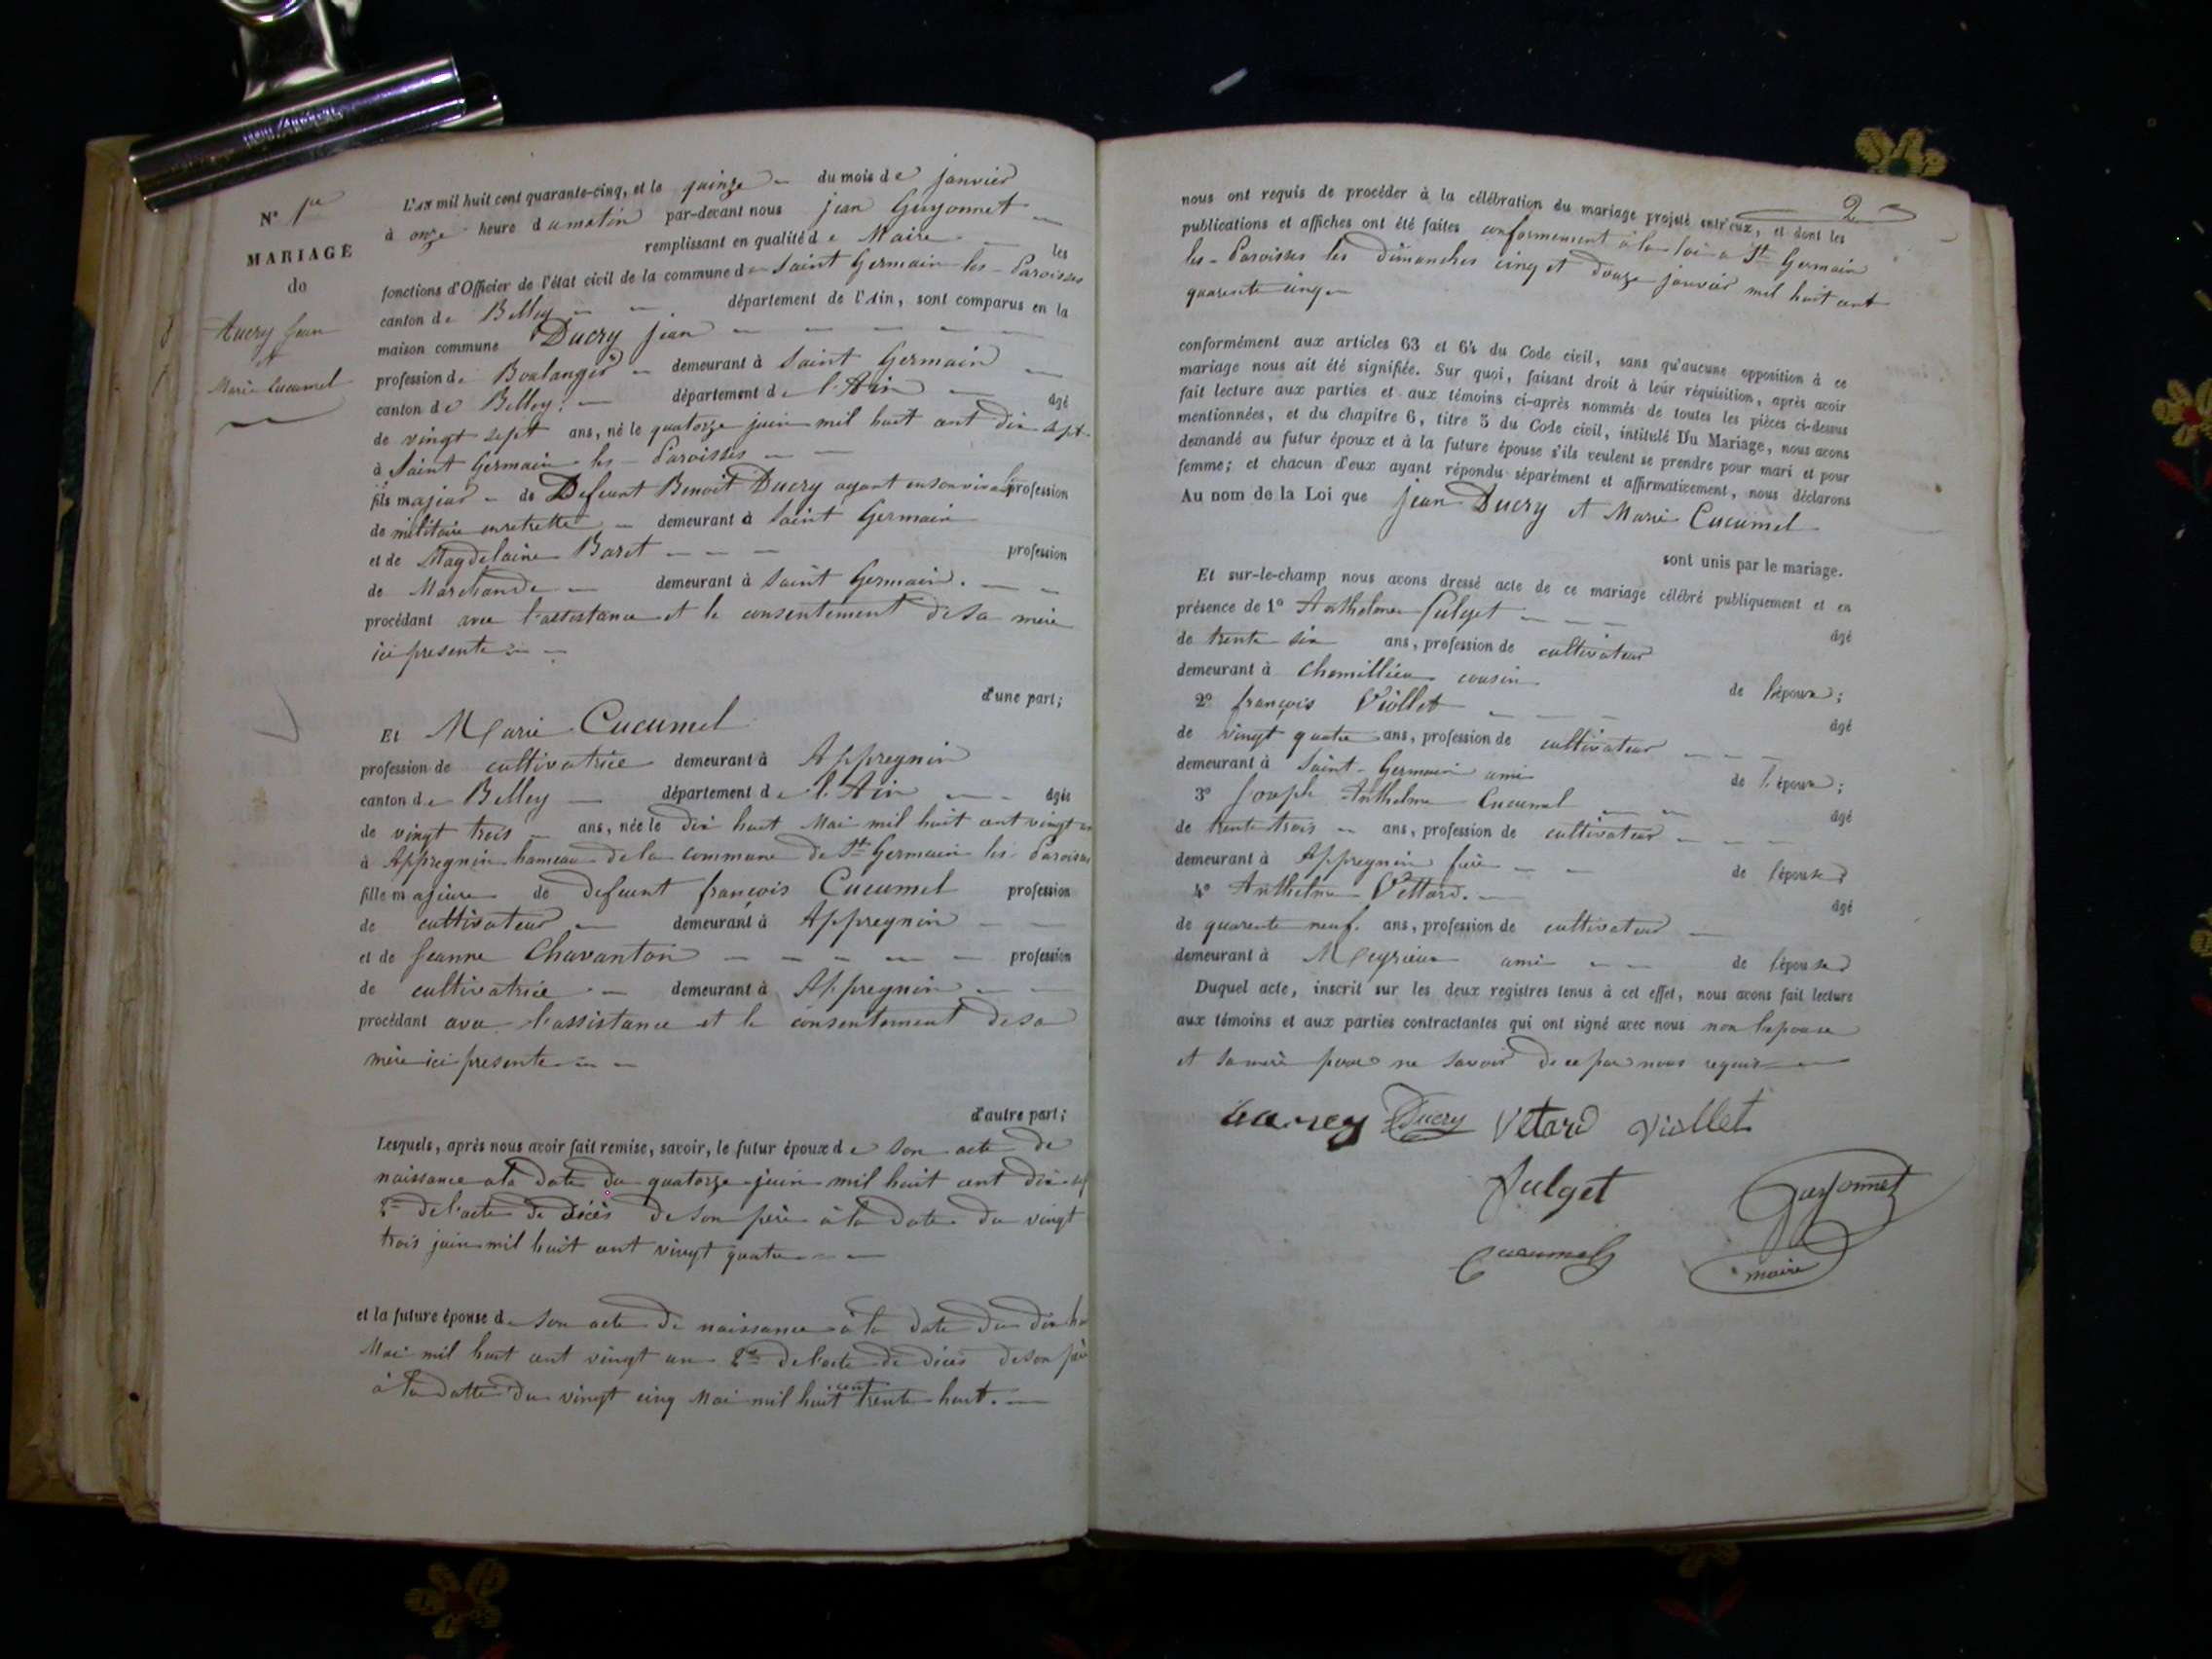 N° 1er
MARIAGE
de
Ducry Jean
et
Marie Cucumel
L'AN mil huit cent quarante-cinq, et le quinze du mois de janvier
à onze heure du matin par-devant nous jean Guyonnet
remplissant en qualité de Maire les
fonctions d'Officier de l'état civil de la commune de Saint Germain les Paroisses
canton de Belley département de l'Ain, sont comparus en la
maison commune Ducry jean
profession de Boulanger demeurant à Saint Germain
canton de Belley. département de l'Ain âgé
de vingt sept ans, né le quatorze juin mil huit cent dix sept
à Saint Germain les Paroisses
fils majeur de Defeunt Benoit Ducry ayant en son vivant profession
de militaire en retrette demeurant à Saint Germain
et de Magdelaine Baret profession
de Marchande demeurant à Saint Germain.
procédant avec l'assistance et le consentement de sa mère
ici presente
d'une part;
Et Marie Cucumel
profession de cultivatrice demeurant à Appregnin
canton de Belley département de l'Ain âgée
de vingt trois ans, née le dix huit Mai mil huit cent vingt un
à Appregnin hameau de la commune de St Germain les Paroisses
fille majeure de defeunt françois Cucumel profession
de cultivateur demeurant à Appregnin
et de Jeanne Chavanton profession
de cultivatrice demeurant à Appregnin
procédant avec l'assistance et le consentement de sa
mère ici presente
d'autre part;
Lesquels, après nous avoir fait remise, savoir, le futur époux de son acte de
naissance a la date du quatorze juin mil huit cent dix
de l'acte de décès de son père à la date du vingt
trois juin mil huit cent vingt quatre
et la future épouse de son acte de naissance à la date du dix
Mai mil huit cent vingt un de l'acte de décès de son père
à la datte du vingt cinq Mai mil huit cent trente huit.
2
nous ont requis de procéder à la célébration du mariage projeté entr'eux, et dont les
publications et affiches ont été faites conformement à la loi a St Germain
les Paroisses les dimanches cinq et douze janvier mil huit cent
quarente cinq
conformément aux articles 63 et 64 du Code civil, sans qu'aucune opposition à ce
mariage nous ait été signifiée. Sur quoi, faisant droit à leur réquisition, après avoir
fait lecture aux parties et aux témoins ci-après nommés de toutes les pièces ci-dessus
mentionnées, et du chapitre 6, titre 5 du Code civil, intitulé Du Mariage, nous avons
demandé au futur époux et à la future épouse s'ils veulent se prendre pour mari et pour
femme; et chacun d'eux ayant répondu séparément et affirmativement, nous déclarons
Au nom de la Loi que jean Ducry et Marie Cucumel
sont unis par le mariage.
Et sur-le-champ nous avons dressé acte de ce mariage célébré publiquement et en
présence de 1° Anthelme Julget
âgé
de trente six ans, profession de cultivateur
demeurant à Chemillieu cousin de l'époux;
2° françois Viollet
âgé
de vingt quatre ans, profession de cultivateur
demeurant à Saint Germain ami de l'époux;
3° Joseph Anthelme Cucumel
âgé
de trente trois ans, profession de cultivateur
demeurant à Appregnin frère de l'épouse
4° Anthelme Vettard.
âgé
de quarente neuf. ans, profession de cultivateur
demeurant à Meyrieux ami de l'épouse
Duquel acte, inscrit sur les deux registres tenus à cet effet, nous avons fait lecture
aux témoins et aux parties contractantes qui ont signé avec nous non l'epouse
et sa mère pour ne savoir de ce par nous requis
Ducry Vetard Viollet
Julget Guyonnet
Cucumel maire